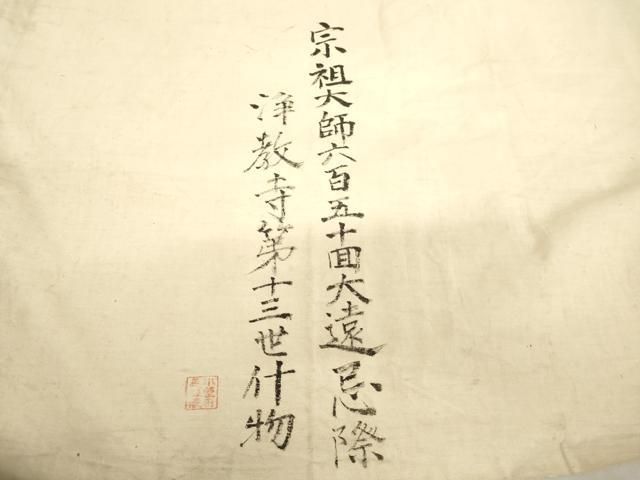 宗祖大師六百五十回大遠忌際
浄教寺第十三世什物